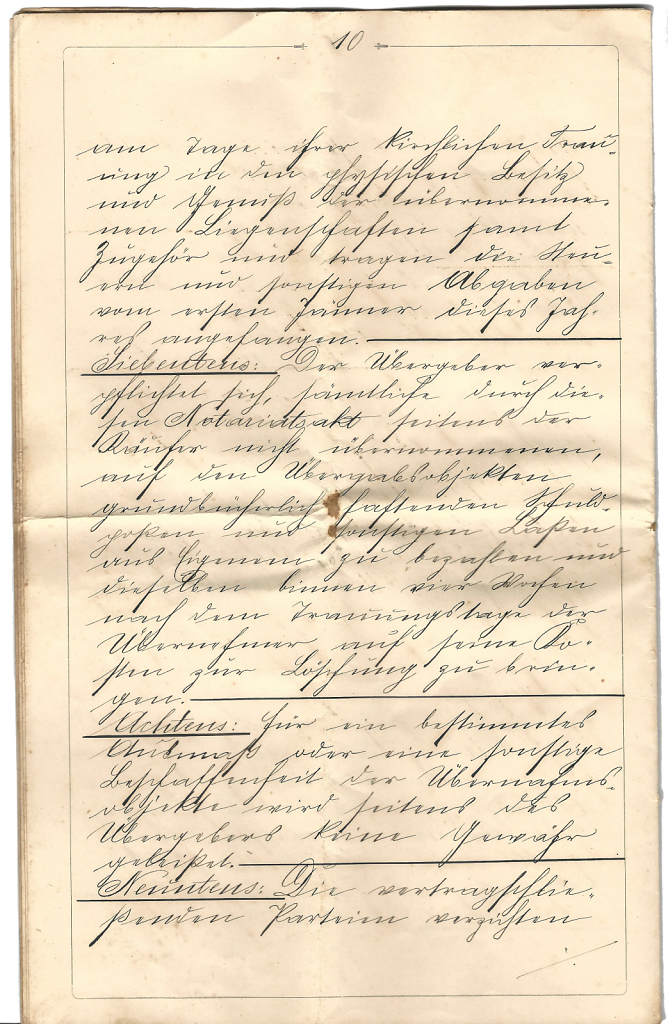 10
am Tage ihrer kirchlichen Trau-
ung in den physischen Besitz
und Genuß der übernomme-
nen Liegenschaften samt
Zugehör und tragen die Steu-
ern und sonstigen Abgaben
vom ersten Jänner dieses Jah-
res angefangen.
Siebentens: Der Übergeber ver-
pflichtet sich, sämtliche durch die-
sen Notariatsakt seitens der
Käufer nicht übernommenen,
auf den Übergabsobjekten
grundbücherlich haftenden Schuld-
posten und sonstigen Lasten
aus Eigenem zu bezahlen und
dieselben binnen vier Wochen
nach dem Trauungstage der
Übernehmer auf seine Ko-
sten zur Löschung zu brin-
gen.
Achtens: Für ein bestimmtes
Ausmaß oder eine sonstige
Beschaffenheit der Übernahms-
objekte wird seitens des
Übergebers keine Gewähr
geleistet.
Neuntens: Die vertragschlie-
ßenden Parteien verzichten